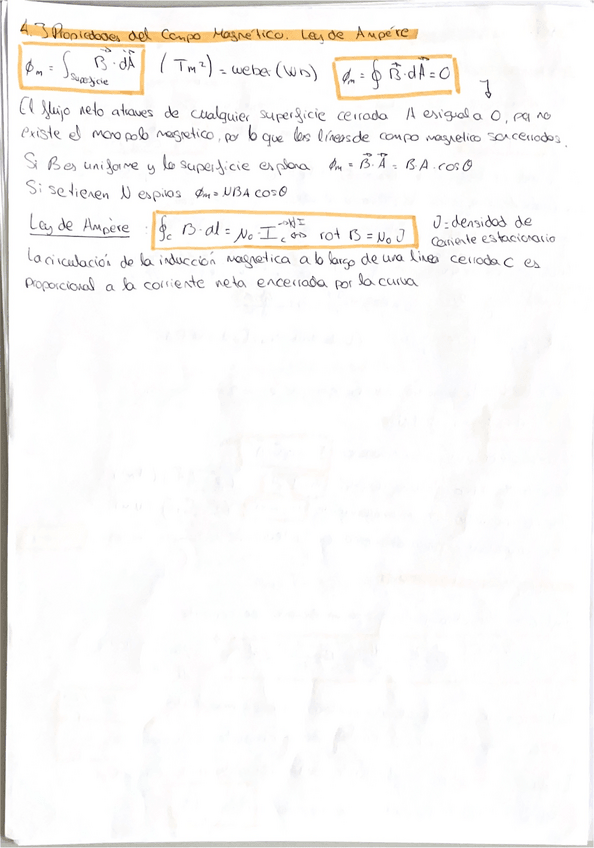 4.3 Propiedades del Campo Magnético. Ley de Ampére
ϕm = ∫superficie B⃗ · dA⃗ (Tm²) = weber (Wb) ϕm = ∮ B⃗ · dA⃗ = 0
El flujo neto atraves de cualquier superficie cerrada A es igual a 0, pq no
existe el monopolo magnetico, por lo que las líneas de campo magnetico son cerradas.
Si B es uniforme y la superficie es plana ϕm = B⃗ · A⃗ = B·A·cosθ
Si se tienen N espiras ϕm = NBA cosθ
Ley de Ampère : ∮c B · dl = μ₀ Ic ⇔ rot B = μ₀ J J = densidad de
corriente estacionaria
La circulación de la inducción magnetica a lo largo de una línea cerrada C es
proporcional a la corriente neta encerrada por la curva